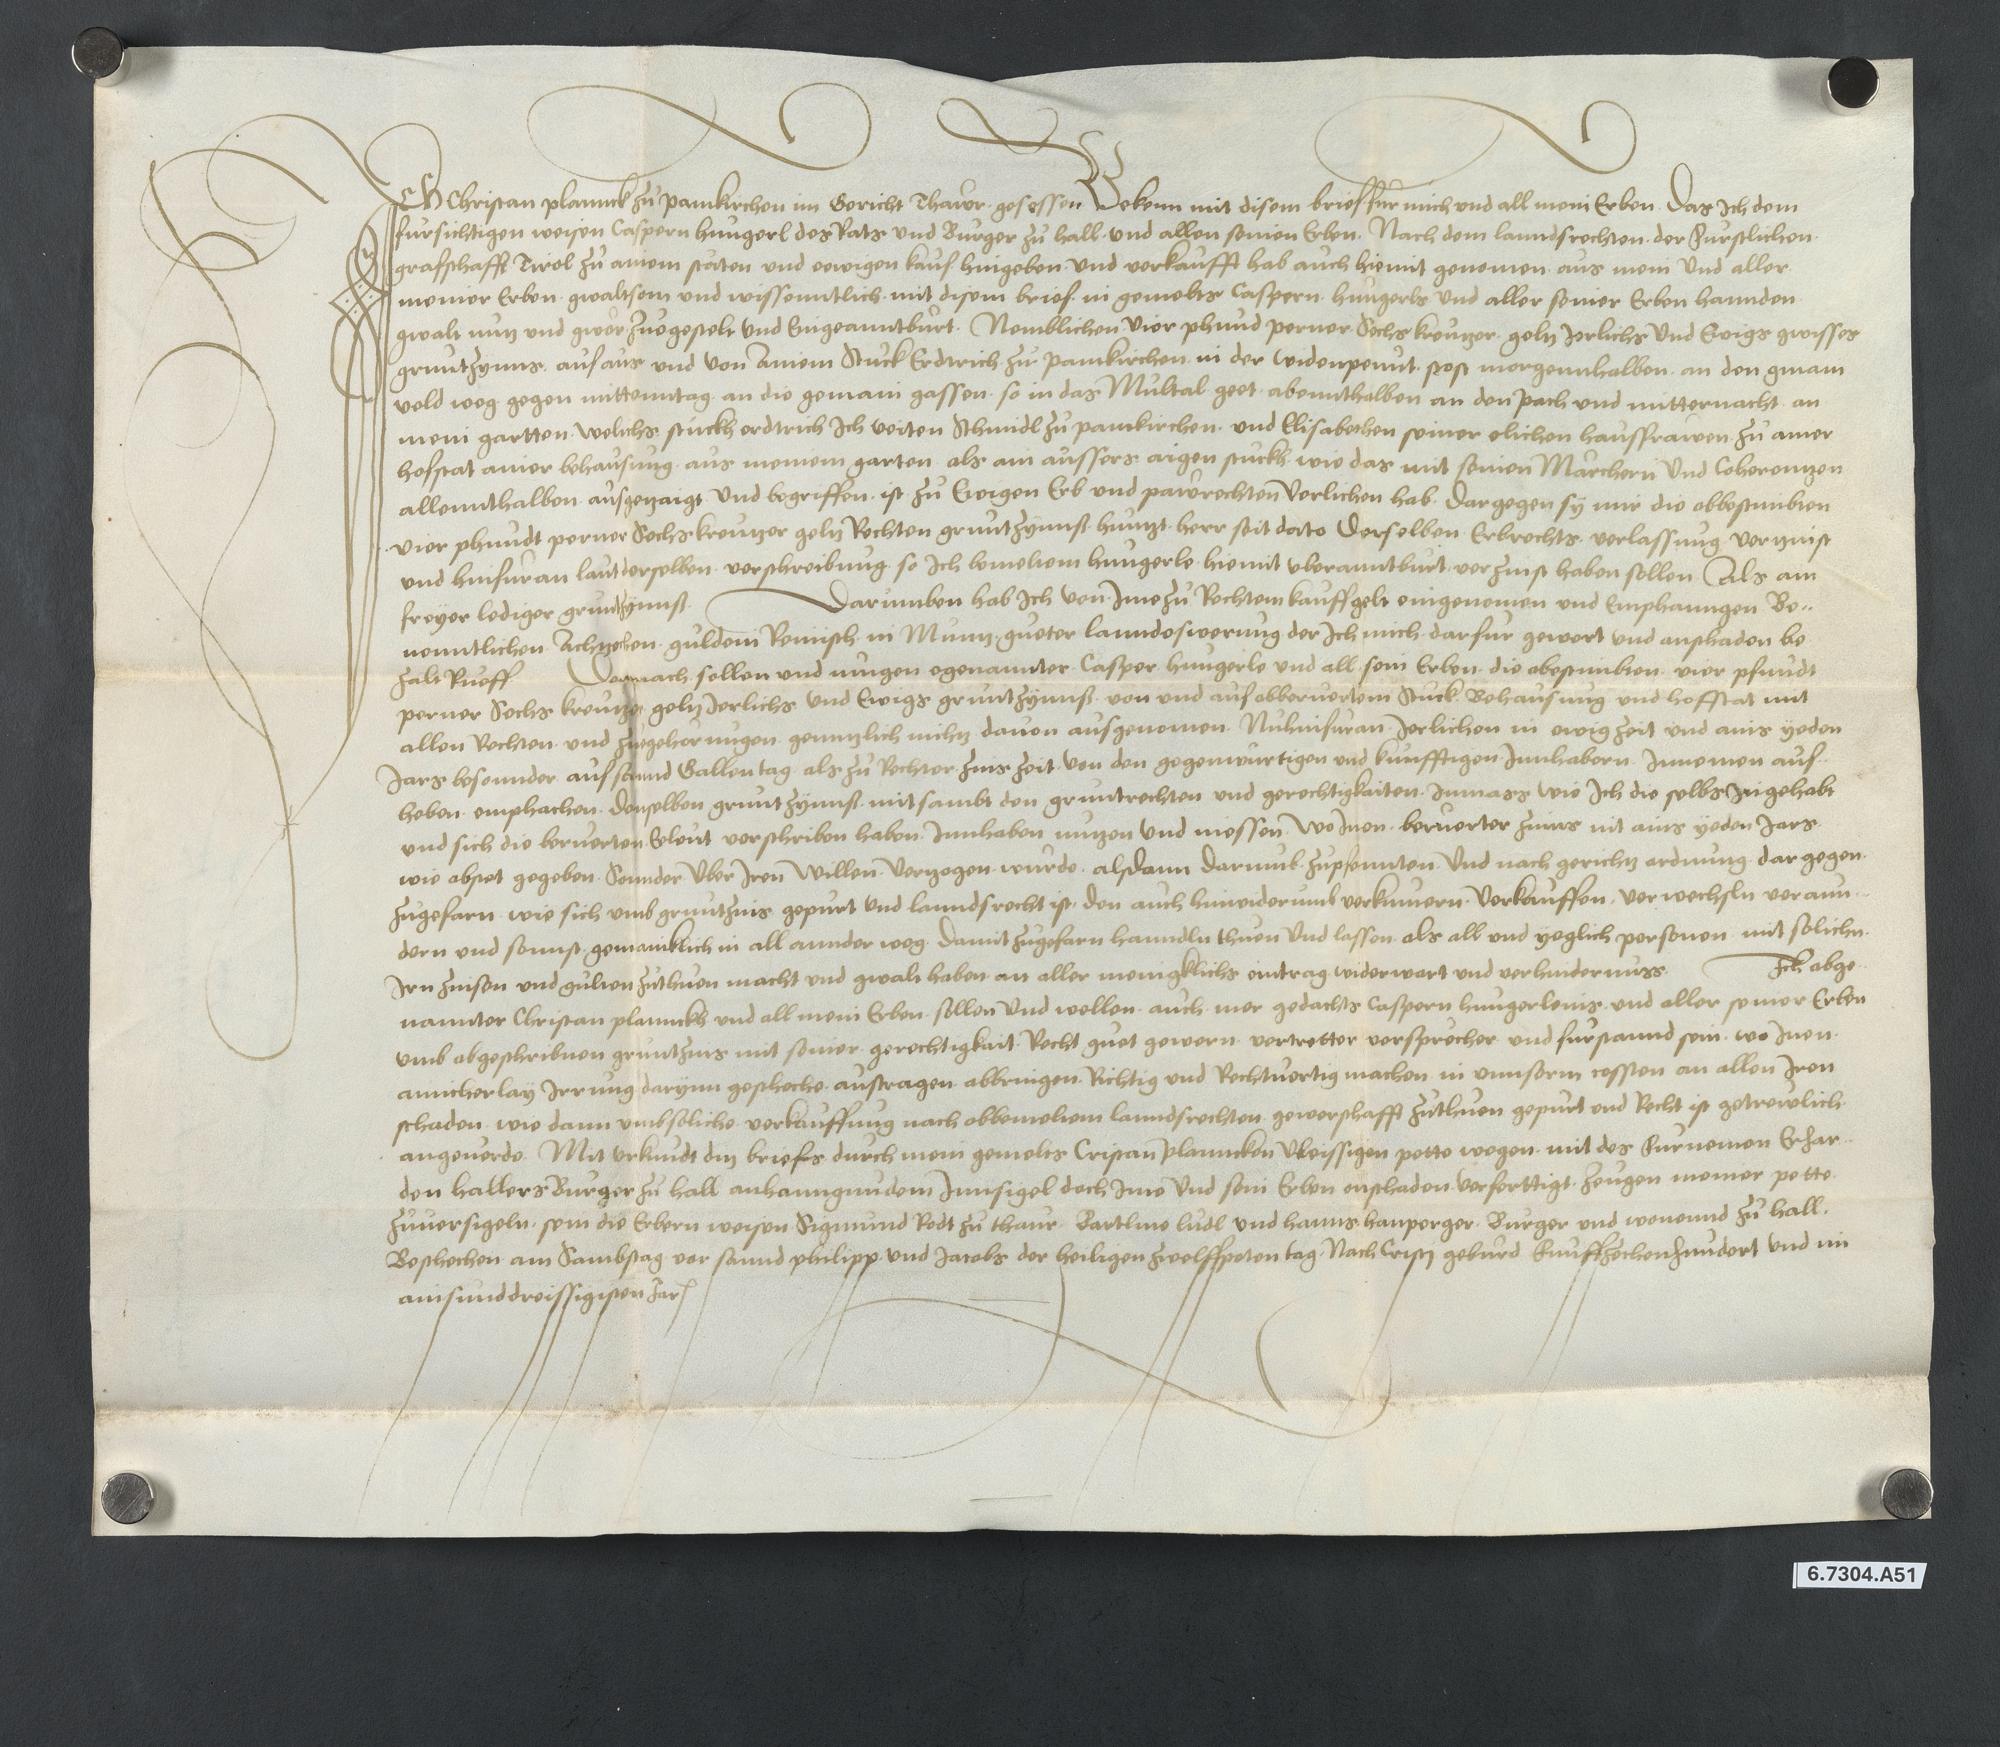 Ich Christan plannck zu pamkirchen im Gericht Thawr gesessen Bekenn mit disem brief fur mich und all mein Erben Das Ich dem
fursichtigen weisen Caspern hungerl des Rats und Burger zu hall und allen seinen Erben Nach dem lanndsrechten der Furstlichen
grafschafft Tirol zu ainem staten und eewigen kauf hingeben und verkaufft hab auch hiemit genomen aus mein und aller
meiner Erben gwaltsam und wissenntlich mit disem brief in gemelts Caspern hungerls und aller seiner Erben hannden
gwalt nutz und gwer zuegestelt und Eingeanntburt Nemblichen Vier phund perner Sechs kreutzer geltz Jerlichs und Ewigs gwisses
gruntzynns auf aus und von Ainem Stuck Erdtrich zu pamkirchen in der widenpeunt stost morgennhalben an den gmain
veld weg gegen mittenntag an die gemain gassen so in das Multal geet abennthalben an den pach und mitternacht an
mein gartten welichs stuckh erdtrich Ich veiten Schmidl zu pamkirchen und Elisabethen seiner elichen hausfrawen zu ainer
hofstat ainer behausung aus meinem garten als ain aussers aigen stuckh wie das mit seinen Marchern und Coherentzen
allennthalben ausgetzaigt und begriffen ist zu Ewigen Erb und pawrechten Verlichen hab Dargegen sy mir die obbestimbten
vier phundt perner Sechs kreutzer geltz Rechten gruntzynnss huntzt herr seit dato Derselben Erbrechts verlassung vertzinst
und hinfuran laut derselben verschreibung so Ich bemeltem hungerle hiemit uberanntburt vertzinst haben sollen Als ain
freyer lediger gruntzynnss Darumben hab Ich von Ime zu Rechtem kauffgelt eingenomen und Emphanngen Be
nenntlichen Achtzehen guldein Reinisch in Muntz gueter lanndeswerung der Ich mich darfur gewert und anschaden be
zalt Rueff Demnach sollen und mugen egenannter Casper hungerle und all sein Erben die obestimbten vier pfundt
perner Sechs kreutzer geltz Jerlichs und Ewigs gruntzynnss von und aus obberuertem Stuck Behausung und hoffstat mit
allen Rechten und zuegehorungen genntzlich nichtz davon ausgenomen Nuhinfuran Jerlichen in ewig zeit und ains yeden
Jars besonnder auf sannd Gallentag als zu Rechter zins zeit von den gegenwurtigen und kunfftigen Innhabern Innemen auf
heben emphachen Denselben gruntzynnss mitsambt den gruntrechten und gerechtigkaiten Inmass wie Ich die selbs Ingehabt
und sich die beruerten Eeleut verschriben haben Innhaben nutzen und niessen Wo Inen beruerter zinns nit ains yeden Jars
wie obstet gegeben Sonnder Uber Iren Willen Vertzogen wurde alsdann Darumb zupfennten und nach gerichtz ordnung dargegen
zugefarn wie sich umb gruntzins gepurt und lanndsrecht ist Den auch hinwiderumb verkumern Verkauffen verwechsln verann
dern und sonnst gemainklich in all annder weg Damit zugefarn hanndln thuen und lassen als all und yeglich personen mit solichn
Irn zinsen und gulten zuthuen macht und gwalt haben an aller menigklichs eintrag widerwart und verhindernuss Ich obge
nannter Christan planncks und all mein Erben sollen und wellen auch mer gedachts Caspern hungerleins und aller seiner Erben
umb obgeschribnen gruntzins mit seiner gerechtigkait Recht guet gewern vertretter versprecher und furstannd sein wo Inen
ainicherlay Irrung darynn gescheche austragen abbringen Richtig und Rechtvertig machen in unnserm cossten an allen Iren
schaden wie dann umb soliche verkauffung nach obbemeltem lanndsrechten gewerschafft zuthuen gepurt und Recht ist getrewlich
angeverde Mit urkundt ditz briefs durch mein gemelts Cristan planncken vleissigen pette wegen mit des Furnemen Erhar
den hallers Burger zu hall anhanngundem Innsigel doch Ime und sein Erben onschaden verferttigt Zeugen meiner pette
zuuersigeln sein die Erbern weisen Sigmund Redt zu thaur Bartlme ludl und hanns hanperger Burger und wonennd zu hall
Beschechen am Sambstag vor sannd philipp und Jacobs der heiligen zwelffpoten tag Nach Cristj geburd funffzechenhundert und im
ainsunddreissigisten Jar
6.7304.A51